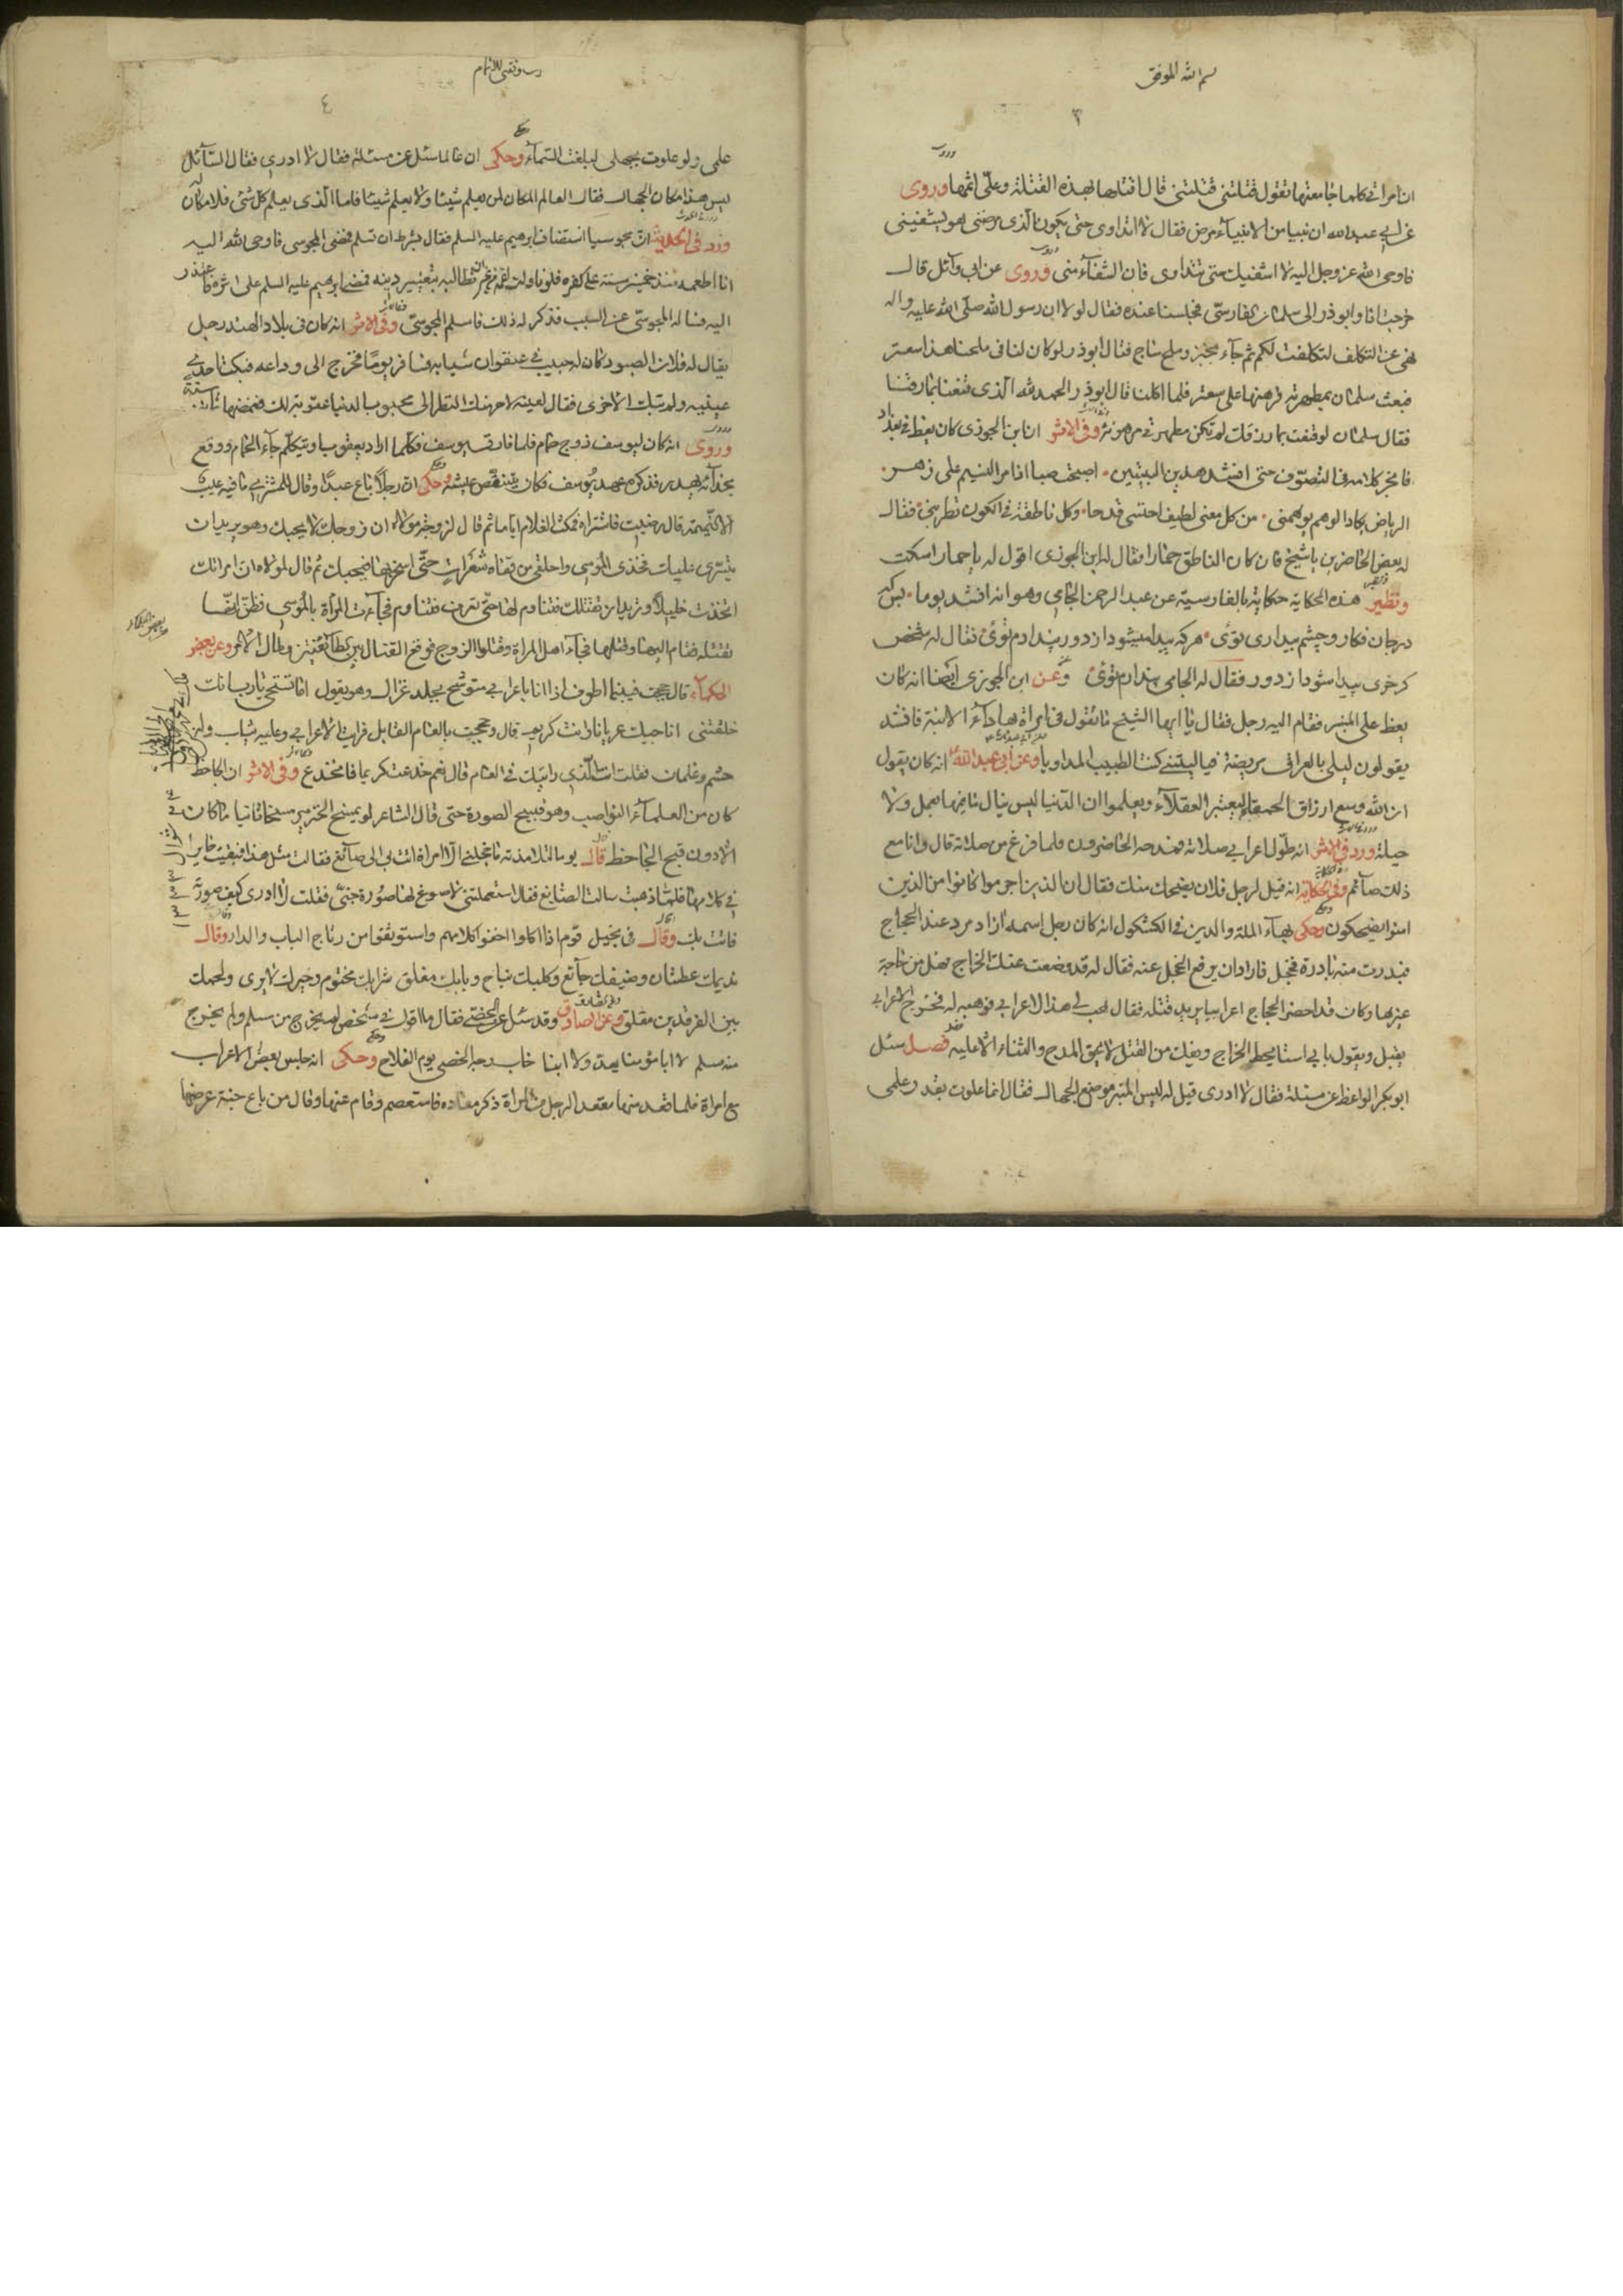 بسم الله الموفق
٣
ان امراتي كلما جامعتها تقول قتلتني قتلتني قال اقتلها بهذه القتلة وعلي اثمها وروى
عن ابي عبدالله ان نبيا من الانبياء مرض فقال لا اتداوى حتى يكون الذي مرضني هو يشفيني
فاوحى الله عز وجل اليه لا اشفيك حتى تتداوى فان الشفاء مني وروى عن ابي وائل قال
خرجت انا وابوذر الى سلمان الفارسي فجلسنا عنده فقال لولا ان رسول الله صلى الله عليه واله
نهى عن التكلف لتكلفت لكم ثم جاء بخبز وملح ساج فقال ابوذر لو كان لنا في ملحنا هذا سعتر
فبعث سلمان بمطهرته فرهنها على سعتر فلما اكلنا قال ابوذر الحمد لله الذي قنعنا بما رزقنا
فقال سلمان لو قنعت بما رزقك لم تكن مطهرتي مرهونة وفى الاثر ان ابن الجوزى كان يعظ في بغداد
فانجر كلامه فى التصوف حتى انشد هذين البيتين اصبحت صبا اذا مر النسيم على زهر
الرياض يكاد الوهم يولهني من كل معنى لطيف احتسي قدحا وكل ناطقة في الكون تطربني فقال
له بعض الحاضرين يا شيخ فان كان الناطق حمارا فقال له ابن الجوزى اقول له يا حمار اسكت
ونظير هذه الحكاية حكاية بالفارسية عن عبد الرحمن الجامي وهو انه انشد يوما بس كه
در جان فكار و چشم بيدارى توئى هر كه پيدا ميشود از دور پندارم توئى فقال له شخص
كر خرى پيدا شود از دور فقال له الجامى پندارم توئى وعن ابن الجوزى ايضا انه كان
يعظ على المنبر فقام اليه رجل فقال يا ايها الشيخ ما تقول فى امراة بها داء الابنة فانشد
يقولون ليلى بالعراق مريضة فيا ليتني كنت الطبيب المداويا وعن ابي عبدالله انه كان يقول
ان الله وسع ارزاق الحمقاء ليعتبر العقلاء ويعلموا ان الدنيا ليس ينال ما فيها بعمل ولا
حيلة ورد في الاثر انه طول اعرابي صلاته فمدحه الحاضرون فلما فرغ من صلاته قال وانا مع
ذلك صائم وفى الحكاية انه قيل لرجل فلان يضحك منك فقال ان الذين اجرموا كانوا من الذين
امنوا يضحكون وحكى بهاء الملة والدين في الكشكول انه كان رجل اسمه ازاد مرد عند الحجاج
فبدرت منه بادرة فخجل فاراد ان يرفع الخجل عنه فقال له قد وضعت عنك الخراج فهل من حاجة
غيرها وكان قد احضر الحجاج اعرابيا يريد قتله فقال هب لي هذا الاعرابي فوهبه له فخرج الاعرابي
يقبل ويقول بابي استا يحط الخراج ويفك من القتل لا يحق المدح والثناء الا عليه فصل سئل
ابوبكر الواعظ عن مسئلة فقال لا ادرى قيل له ليس المنبر موضع الجهال فقال انما علوت بقدر علمى
٤
علمى ولو علوت بجهلى لبلغت السماء وحكى ان عالما سئل عن مسئلة فقال لا ادرى فقال السائل
ليس هذا مكان الجهال فقال العالم المكان لمن يعلم شيئا ولا يعلم شيئا فاما الذى يعلم كل شئ فلا مكان له
ورد فى الحديث ان مجوسيا استضاف ابرهيم عليه السلم فقال بشرط ان تسلم فمضى المجوسى فاوحى الله اليه
انا اطعمه منذ خمسين سنة على كفره فلو ناولته لقمة من غير ان تطالبه بتغيير دينه فمضى ابرهيم عليه السلم على اثره فاعتذر
اليه فسأله المجوسى عن السبب فذكر له ذلك فاسلم المجوسى وفى الاثر انه كان فى بلاد الهند رجل
يقال له فلان الصبور كان له حبيب في عنفوان شبابه فسافر يوما فخرج الى وداعه فبكت احدى
عينيه ولم تبك الاخرى فقال لعينه لاحرمنك النظر الى محبوب الدنيا عقوبة لك فغمضها ثمانين سنة
وروى انه كان ليوسف زوج حمام فلما فارق يوسف فكلما اراد يعقوب ان يتكلم جاء الحمام ووقع
بحذائه يهدر فذكره عهد يوسف فكان يتنغص عيشه وحكى ان رجلا باع عبدا وقال للمشتري ما فيه عيب
الا النميمة قال رضيت فاشتراه فمكث الغلام اياما ثم قال لزوجة مولاه ان زوجك لا يحبك وهو يريد ان
يتسرى عليك فخذى الموسى واحلقى من قفاه شعرات حتى اسحره بها فيحبك ثم قال لمولاه ان امراتك
اتخذت خليلا وتريد ان تقتلك فتناوم لها حتى تعرف فتناوم فجاءت المراة بالموسى فظن انها
تقتله فقام اليها وقتلها فجاء اهل المراة وقتلوا الزوج فوقع القتال بين الطائفتين وطال الامر وعن بعض
الحكماء قال حججت فبينما اطوف اذا انا باعرابي متوشح بجلد غزال وهو يقول اما تستحي يا رب انت
خلقتني اناجيك عريانا وانت كريم قال وحججت بالعام القابل فرايت الاعرابي وعليه ثياب وله
حشم وغلمان فقلت انت الذى رايتك في العام قال نعم خدعت كريما فانخدع وفى الاثر ان الجاحظ
كان من العلماء النواصب وهو قبيح الصورة حتى قال الشاعر لو يمسخ الخنزير مسخا ثانيا ما كان
الا دون قبح الجاحظ قال يوما لتلامذته ما خجلني الا امراة اتت بي الى صائغ فقالت مثل هذا فبقيت حايرا
في كلامها فلما ذهبت سالت الصايغ فقال استعملتني لاصوغ لها صورة جنى فقلت لا ادرى كيف صورته
فاتت بك وقال فى بخيل قوم اذا اكلوا اخفوا كلامهم واستوثقوا من رتاج الباب والدار وقال
نديمك عطشان وضيفك جائع وكلبك نباح وبابك مغلق شرابك مختوم وخبزك لا يرى ولحمك
بين الفرقدين معلق وعن الصادق وقد سئل عن الخصى فقال ما اقول في شخص لم يخرج من مسلم ولم يخرج
منه مسلم لا ابا مؤمنا يعد ولا ابنا خاب وجه الخصى يوم الفلاح وحكى انه جلس بعض الاعراب
مع امراة فلما قعد منها مقعد الرجل من المراة ذكر معاده فاستعصم وقام عنها وقال من باع جنة عرضها